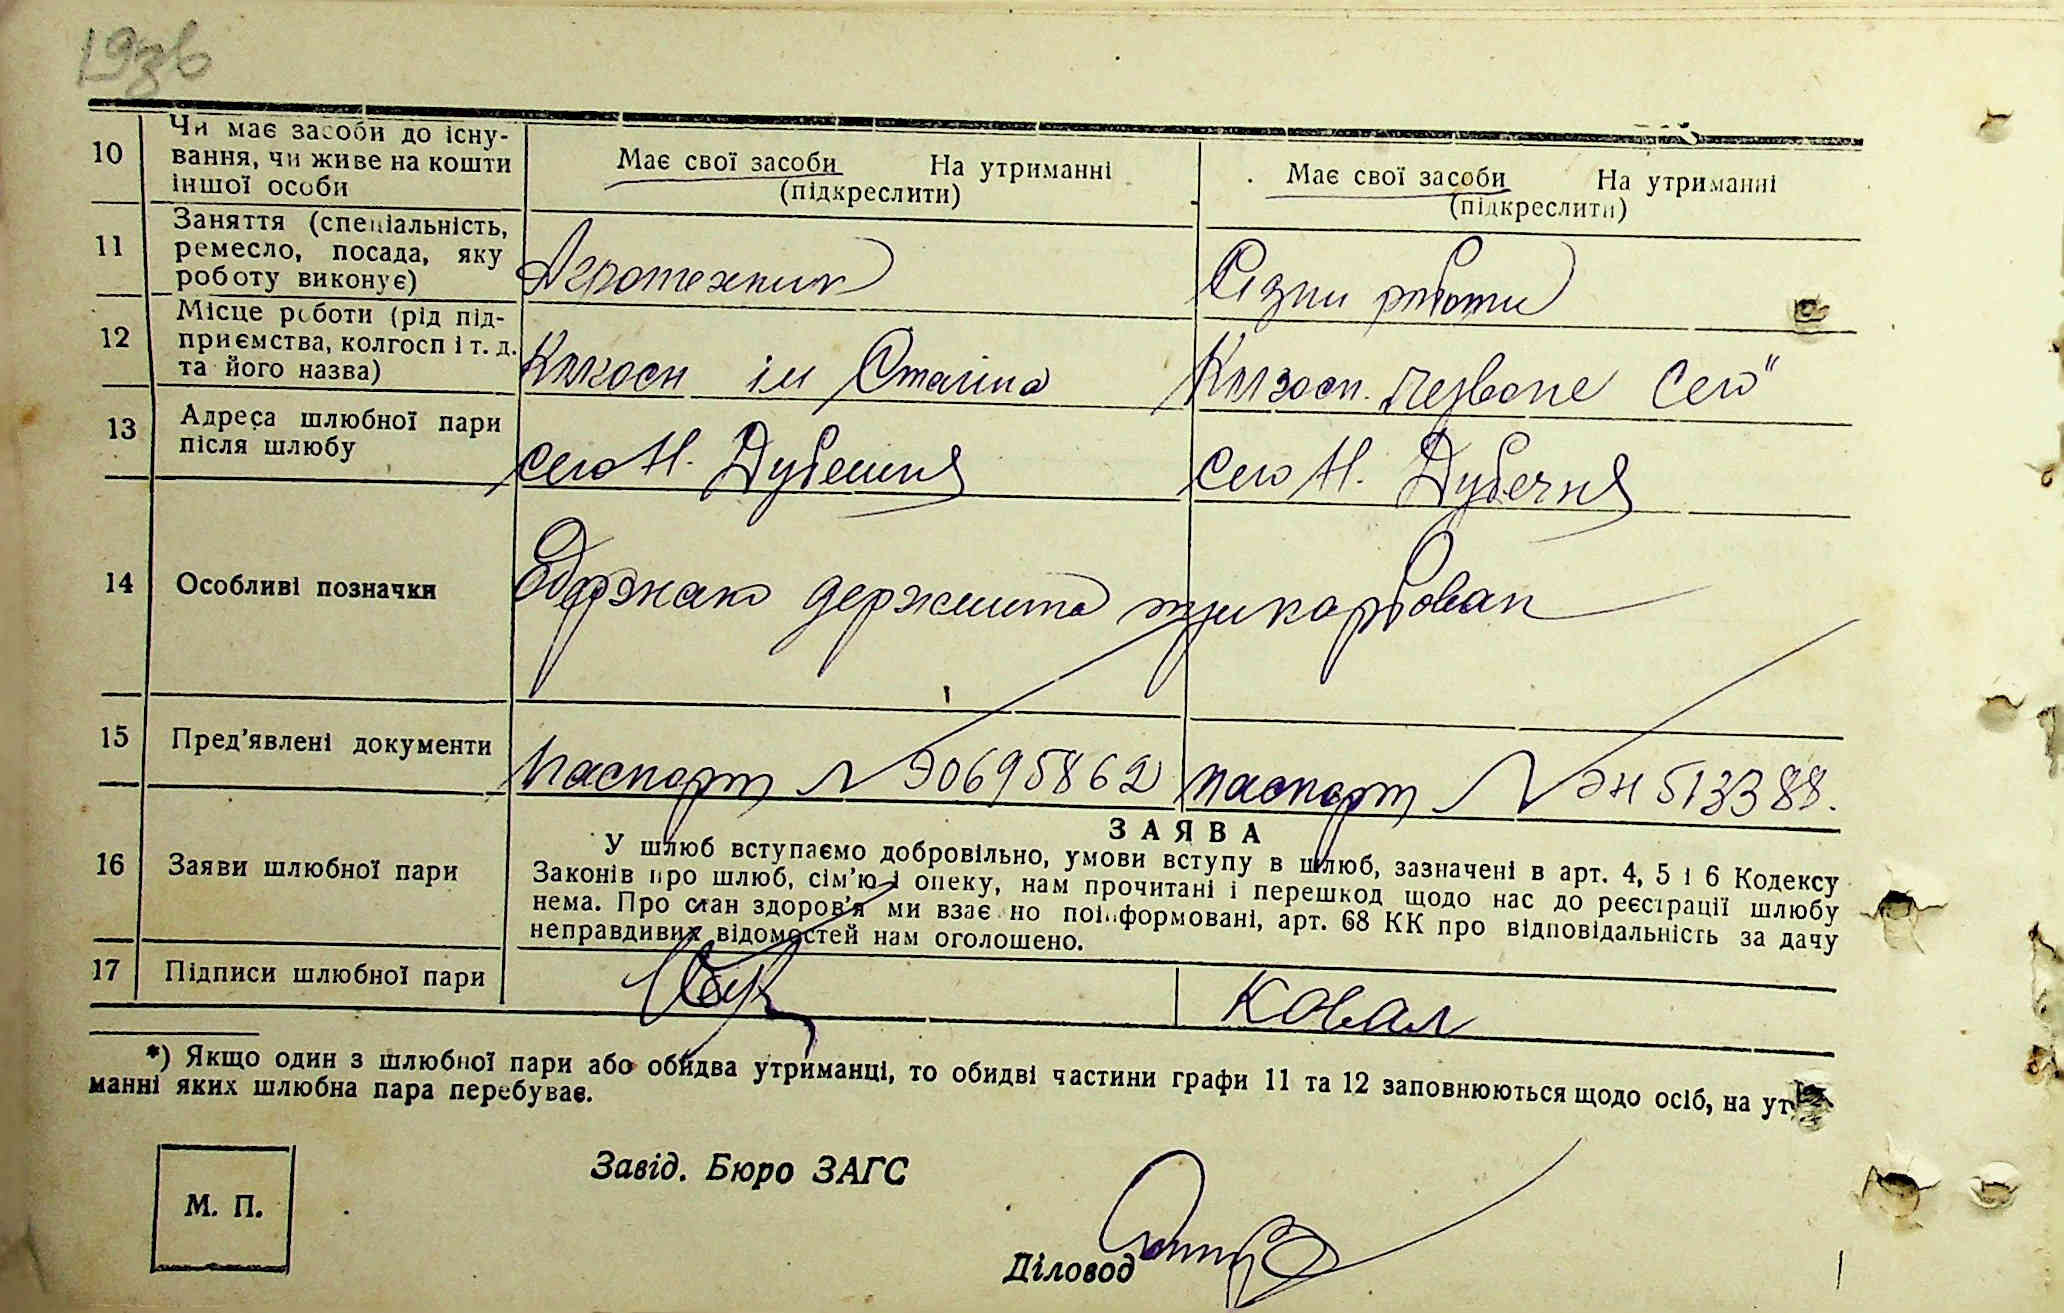 1936
10 Чи має засоби до існу-
вання, чи живе на кошти
іншої особи
Має свої засоби На утриманні
(підкреслити)
Має свої засоби На утриманні
(підкреслити)
11 Заняття (спеціальність,
ремесло, посада, яку
роботу виконує)
Агротехник
Різни роботи
12 Місце роботи (рід під-
приємства, колгосп і т. д.
та його назва)
Колхосп ім Сталіна
Колгосп. Червоне Село"
13 Адреса шлюбної пари
після шлюбу
село Н. Дубешня
село Н. Дубечня
14 Особливі позначки
15 Пред'явлені документи
паспорт № ЭО695862
паспорт № ЭН 513388.
ЗАЯВА
16 Заяви шлюбної пари
У шлюб вступаємо добровільно, умови вступу в шлюб, зазначені в арт. 4, 5 і 6 Кодексу
Законів про шлюб, сім'ю і опеку, нам прочитані і перешкод щодо нас до реєстрації шлюбу
нема. Про стан здоров'я ми взаємно поінформовані, арт. 68 КК про відповідальність за дачу
неправдивих відомостей нам оголошено.
17 Підписи шлюбної пари
Ковал
*) Якщо один з шлюбної пари або обидва утриманці, то обидві частини графи 11 та 12 заповнюються щодо осіб, на ут
манні яких шлюбна пара перебуває.
Завід. Бюро ЗАГС
М. П.
Діловод